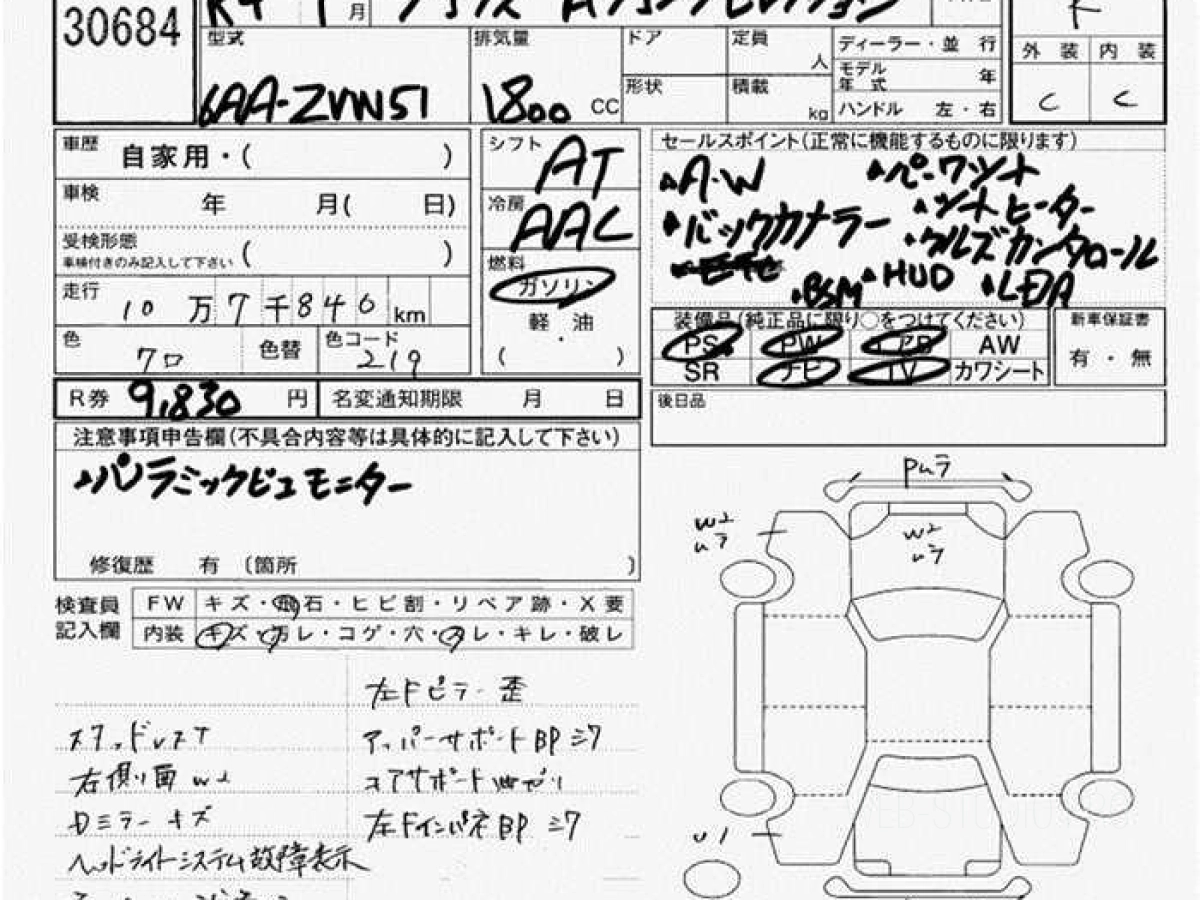 30684
R4 月 プリウス Aツーリングセレクション
型式 排気量 ドア 定員 人 ディーラー・並 行
外 装 内 装
形状 積載 kg モデル年式 年
6AA-ZVW51 1800 CC ハンドル 左・右 C C
車歴 自家用・( )
シフト AT
セールスポイント(正常に機能するものに限ります)
・A・W ・パーワツート
車検 年 月( 日)
冷房 AAC
・バックカメラー ・シートヒーター
・クルズカンタロール
受検形態 ( )
車検付きのみ記入して下さい
燃料 ガソリン
・BSM ・HUD ・LDA
走行 10 万 7 千 846 km
軽・油
( )
装備品(純正品に限り○をつけてください)
新車保証書
PS PW エアB AW
有・無
色 クロ 色替 色コード 219
SR ナビ TV カワシート
R券 9,830 円 名変通知期限 月 日
後日品
注意事項申告欄(不具合内容等は具体的に記入して下さい)
・パノラミックビュモニター
修復歴 有 〔箇所 )
検査員記入欄
FW キズ・飛石・ヒビ割・リペア跡・X要
内装 キズ・コゲ・穴・スレ・キレ・破レ
左Fピラー歪
スタッドレスT
アッパーサポートBPミワ
右側面 W2
コアサポート
Dミラーキズ
左FインパネBP ミワ
ヘッドライトシステム故障表示
W2
Uラ
W2
Uラ
U1